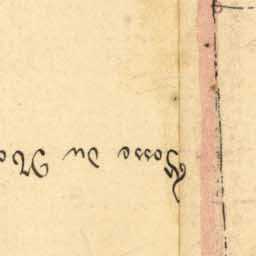 Fosse du No